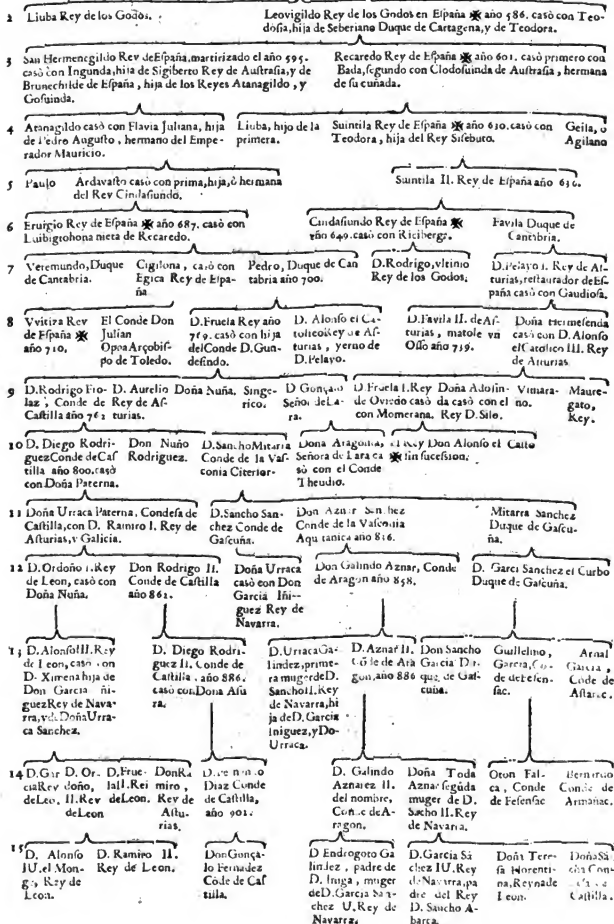 2 Liuba Rey de los Godos.
Leovigildo Rey de los Godos en España ✠ año 586. casò con Teo-
dosia, hija de Seberiano Duque de Cartagena, y de Teodora.
3 San Hermenegildo Rey de España, martirizado el año 595.
casò con Ingunda, hija de Sigiberto Rey de Austrasia, y de
Brunechilde de España, hija de los Reyes Atanagildo, y
Gosuinda.
Recaredo Rey de España ✠ año 601. casò primero con
Bada, segundo con Clodosuinda de Austrasia, hermana
de su cuñada.
4 Atanagildo casò con Flavia Juliana, hija
de Pedro Augusto, hermano del Empe-
rador Mauricio.
Liuba, hijo de la
primera.
Suintila Rey de España ✠ año 630. casò con
Teodora, hija del Rey Sisebuto.
Geila, ò
Agilano
5 Paulo
Ardavasto casò con prima, hija, ò hermana
del Rey Cindasiundo.
Suintila II. Rey de España año 636.
6 Eruigio Rey de España ✠ año 687. casò con
Luibigotohona nieta de Recaredo.
Cindasiundo Rey de España ✠
año 649. casò con Riciberga.
Favila Duque de
Cantabria.
7 Veremundo, Duque
de Cantabria.
Cigilona, casò con
Egica Rey de Espa-
ña
Pedro, Duque de Can
tabria año 700.
D. Rodrigo, vltimo
Rey de los Godos.
D. Pelayo I. Rey de As-
turias, restaurador de Es-
paña casò con Gaudiosa.
8 Vvitiza Rey
de España ✠
año 710.
El Conde Don
Julian
Opoa Arçobis-
po de Toledo.
D. Fruela Rey año
759. casò con hija
del Conde D. Gun-
desindo.
D. Alonso el Ca-
tolico Rey de As-
turias, yerno de
D. Pelayo.
D. Favila II. de As-
turias, matole vn
Osso año 739.
Doña Hermesenda
casò con D. Alonso
el Catolico III. Rey
de Asturias.
9 D. Rodrigo Fro-
laz, Conde de
Castilla año 762
D. Aurelio
Rey de As-
turias.
Doña Nuña.
Singe-
rico.
D. Gonçalo
Señor de La-
ra.
D. Fruela I. Rey
de Oviedo casò
con Momerana.
Doña Adosin-
da casò con el
Rey D. Silo.
Vimara-
no.
Maure-
gato,
Rey.
10 D. Diego Rodri-
guez Conde de Cas
tilla año 800. casò
con Doña Paterna.
Don Nuño
Rodriguez.
D. Sancho Mitarra
Conde de la Vas-
conia Citerior.
Dona Aragonta,
Señora de Lara ca
sò con el Conde
Theudio.
El Rey Don Alonso el Casto
✠ sin sucession.
11 Doña Urraca Paterna, Condesa de
Castilla, con D. Ramiro I. Rey de
Asturias, y Galicia.
D. Sancho San-
chez Conde de
Gascuña.
Don Aznar Sanchez
Conde de la Vasconia
Aquitanica año 836.
Mitarra Sanchez
Duque de Gascu-
ña.
12 D. Ordoño I. Rey
de Leon, casò con
Doña Nuña.
Don Rodrigo II.
Conde de Castilla
año 862.
Doña Urraca
casò con Don
Garcia Iñi-
guez Rey de
Navarra.
Don Galindo Aznar, Conde
de Aragon año 858.
D. Garci Sanchez el Curbo
Duque de Gascuña.
13 D. Alonso III. Rey
de Leon, casò con
D. Ximena hija de
Don Garcia Iñi-
guez Rey de Nava-
rra, y de Doña Urra-
ca Sanchez.
D. Diego Rodri-
guez II. Conde de
Castilla. año 886.
casò con Dona Asu
ra.
D. Urraca Ga-
lindez, prime-
ra muger de D.
Sancho II. Rey
de Navarra, hi
ja de D. Garcia
Iniguez, y Do-
Urraca.
D. Aznar II.
Códe de Ara
gon, año 886
Don Sancho
Garcia Du-
que de Gas-
cuña.
Guillelmo,
Garcia, Co-
de de Fesen-
sac.
Arnal
Garcia,
Conde de
Astarac.
14 D. Gar
cia Rey
de Leo.
D. Or-
doño,
II. Rey
de Leon
D. Frue-
la II. Rey
de Leon.
Don Ra
miro,
Rey de
Astu-
rias.
D. Fernando
Diaz Conde
de Castilla,
año 901.
D. Galindo
Aznarez II.
del nombre,
Conde de A-
ragon.
Doña Toda
Aznar segúda
muger de D.
Sácho II. Rey
de Navarra.
Oton Fal-
ca, Conde
de Fesensac
Bernardo
Conde de
Armañac.
15 D. Alonso
IV. el Mon-
ge, Rey de
Leon.
D. Ramiro II.
Rey de Leon.
Don Gonça-
lo Fernadez
Códe de Cas
tilla.
D Endrogoto Ga
lindez, padre de
muger
de D. Garcia San-
chez V. Rey de
Navarra.
D. Garcia Sá
chez IV. Rey
de Navarra, pa
dre del Rey
D. Sancho A-
barca.
Doña Tere-
sa Florenti-
na, Reyna de
Leon.
Doña Sá-
cha Con-
desa de
Castilla.